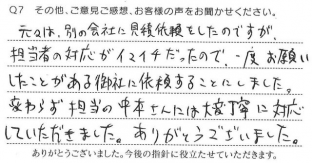 Q7 その他、ご意見ご感想、お客様の声をお聞かせください。
元々は、別の会社に見積依頼をしたのですが、
担当者の対応がイマイチだったので、一度お願い
したことがある御社に依頼することにしました。
変わらず担当の中本さんには大変丁寧に対応
していただきました。ありがとうございました。
ありがとうございました。今後の指針に役立たせていただきます。